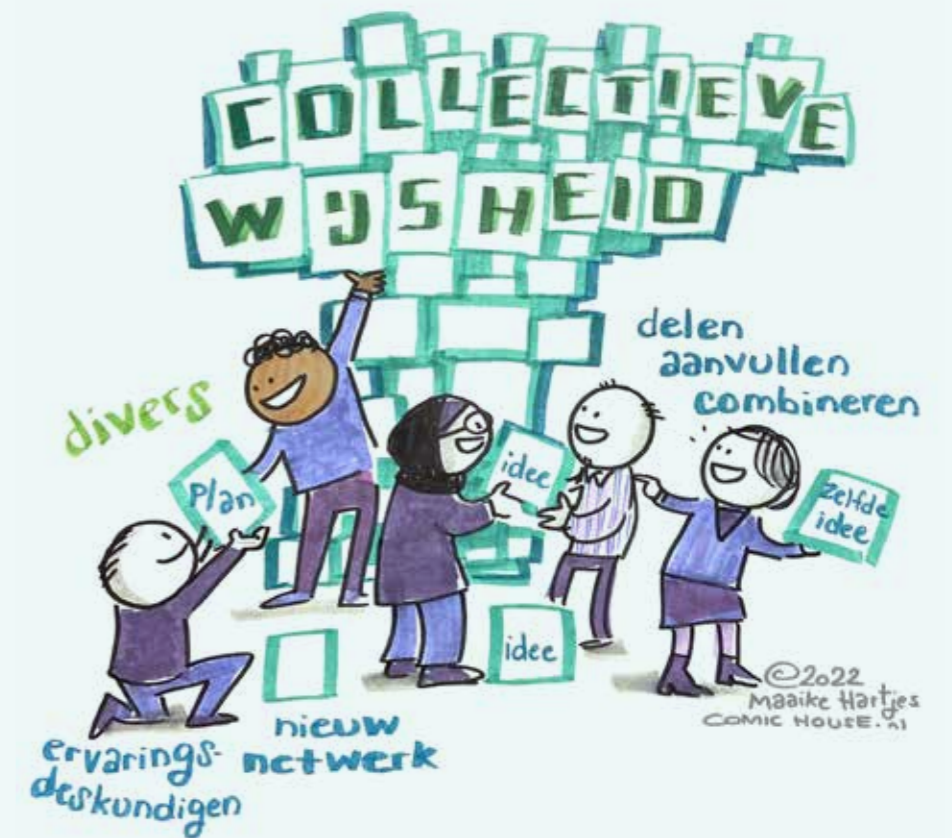 COLLECTIEVE
WIJSHEID
delen
aanvullen
combineren
divers
plan
idee
zelfde
idee
idee
©2022
Maaike Hartjes
COMIC HOUSE.nl
nieuw
netwerk
ervarings-
deskundigen